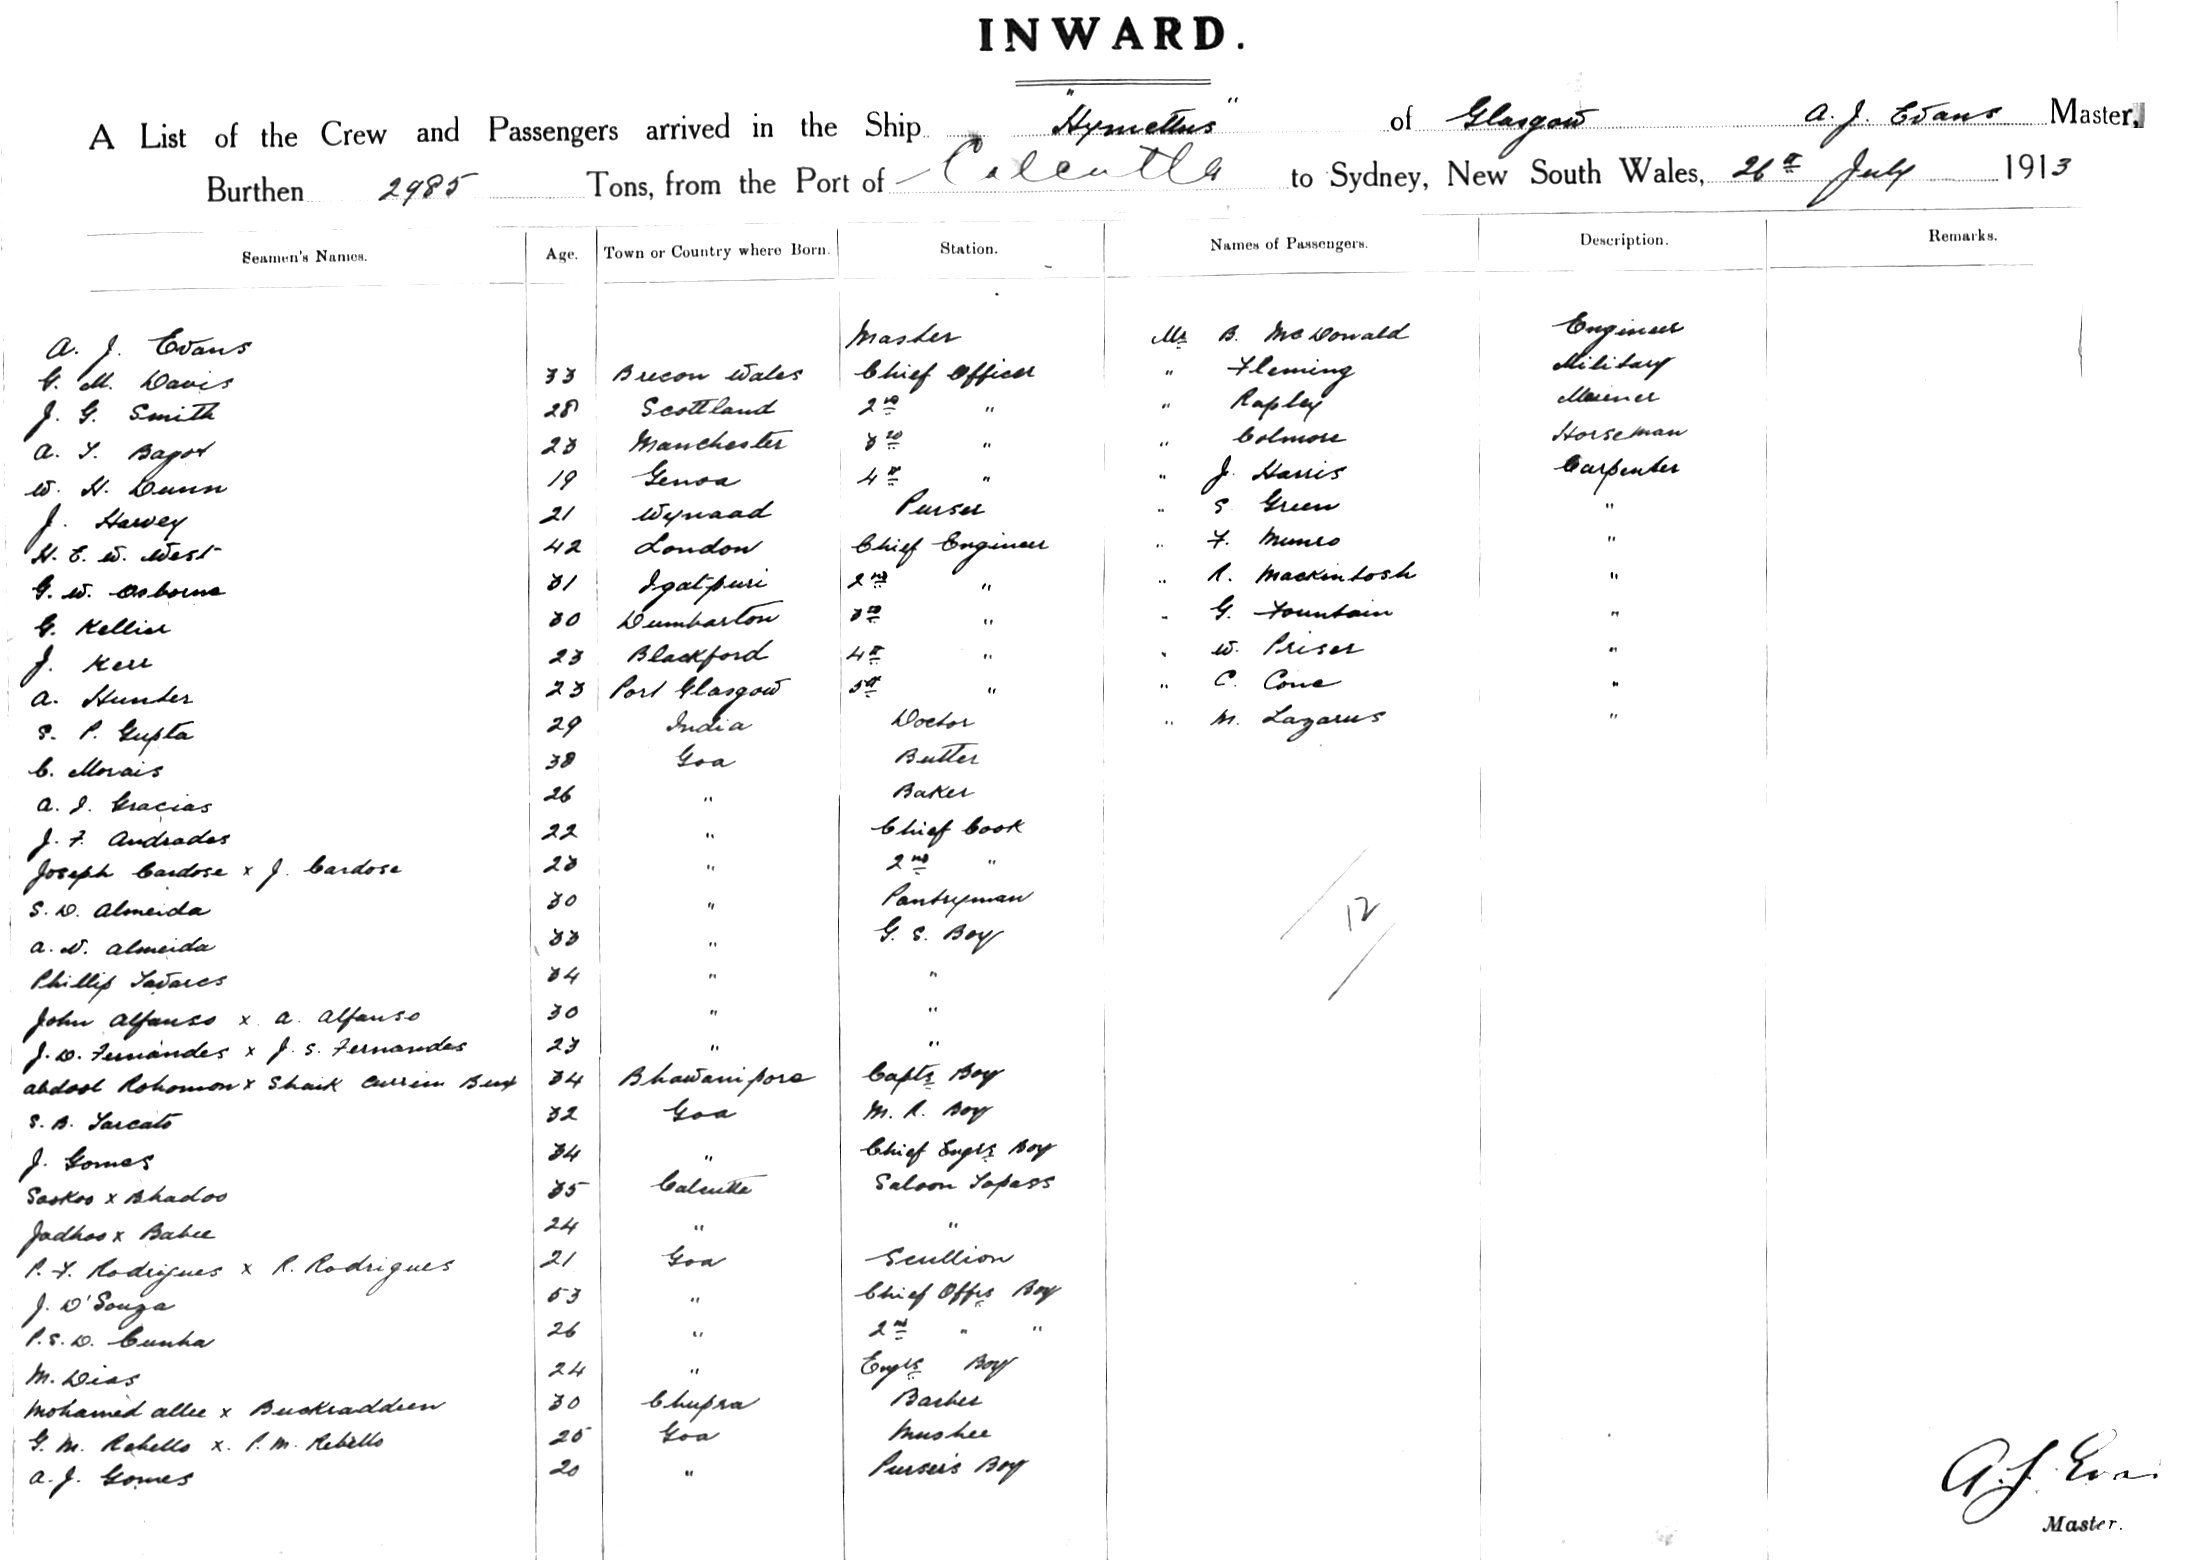 INWARD.
A List of the Crew and Passengers arrived in the Ship "Hymettus" of Glasgow A. J. Evans Master,
Burthen 2985 Tons, from the Port of Calcutta to Sydney, New South Wales, 26th July 1913
Seamen's Names. Age. Town or Country where Born. Station. Names of Passengers. Description. Remarks.
A. J. Evans Master Mr B. McDonald Engineer
G. M. Davis 33 Brecon Wales Chief Officer " Fleming Military
J. G. Smith 28 Scottland 2nd " " Rapley Marener
A. T. Bagot 23 Manchester 3rd " " Colmore Horseman
W. H. Dunn 19 Genoa 4th " " J. Harris Carpenter
J. Harvey 21 Wynaad Purser " S Green "
H. E. W. West 42 London Chief Engineer " F. Munro "
G. W. Osborne 31 Igatpuri 2nd " " R. Mackintosh "
G. Kellier 30 Dumbarton 3rd " " G. Fountain "
J. Kerr 23 Blackford 4th " " W. Priser "
A. Hunter 23 Port Glasgow 5th " " C. Cone "
S. P. Gupta 29 India Doctor " M. Lazarus "
C. Morais 38 Goa Butler
A. I. Gracias 26 " Baker
J. F. Andrades 22 " Chief Cook
Joseph Cardose x J. Cardose 23 " 2nd "
S. D. Almeida 30 " Pantryman
A. D. Almeida 33 " G. S. Boy
12
Phillip Tavares 34 " "
John Alfanso x A. Alfanso 30 " "
J. D. Fernandes x J. S. Fernandes 23 " "
Abdool Rohomon x Shaik Currim Bux 34 Bhawanipore Capts Boy
S. B. Tarcato 32 Goa M. R. Boy
J. Gomes 34 " Chief Engrs Boy
Sookoo x Bhadoo 35 Calcutta Saloon Topass
Jadhoo x Babee 24 " "
P. F. Rodrigues x R. Rodrigues 21 Goa Scullion
J. D'Souza 53 " Chief Offrs Boy
P. S. D. Cunha 26 " 2nd " "
M. Dias 24 " Engrs Boy
Mohamed Allee x Buckraddeen 30 Chupra Barber
G. M. Rebello x P. M. Rebello 25 Goa Mushee
A. J. Gomes 20 " Purser's Boy
A. J. Evans
Master.